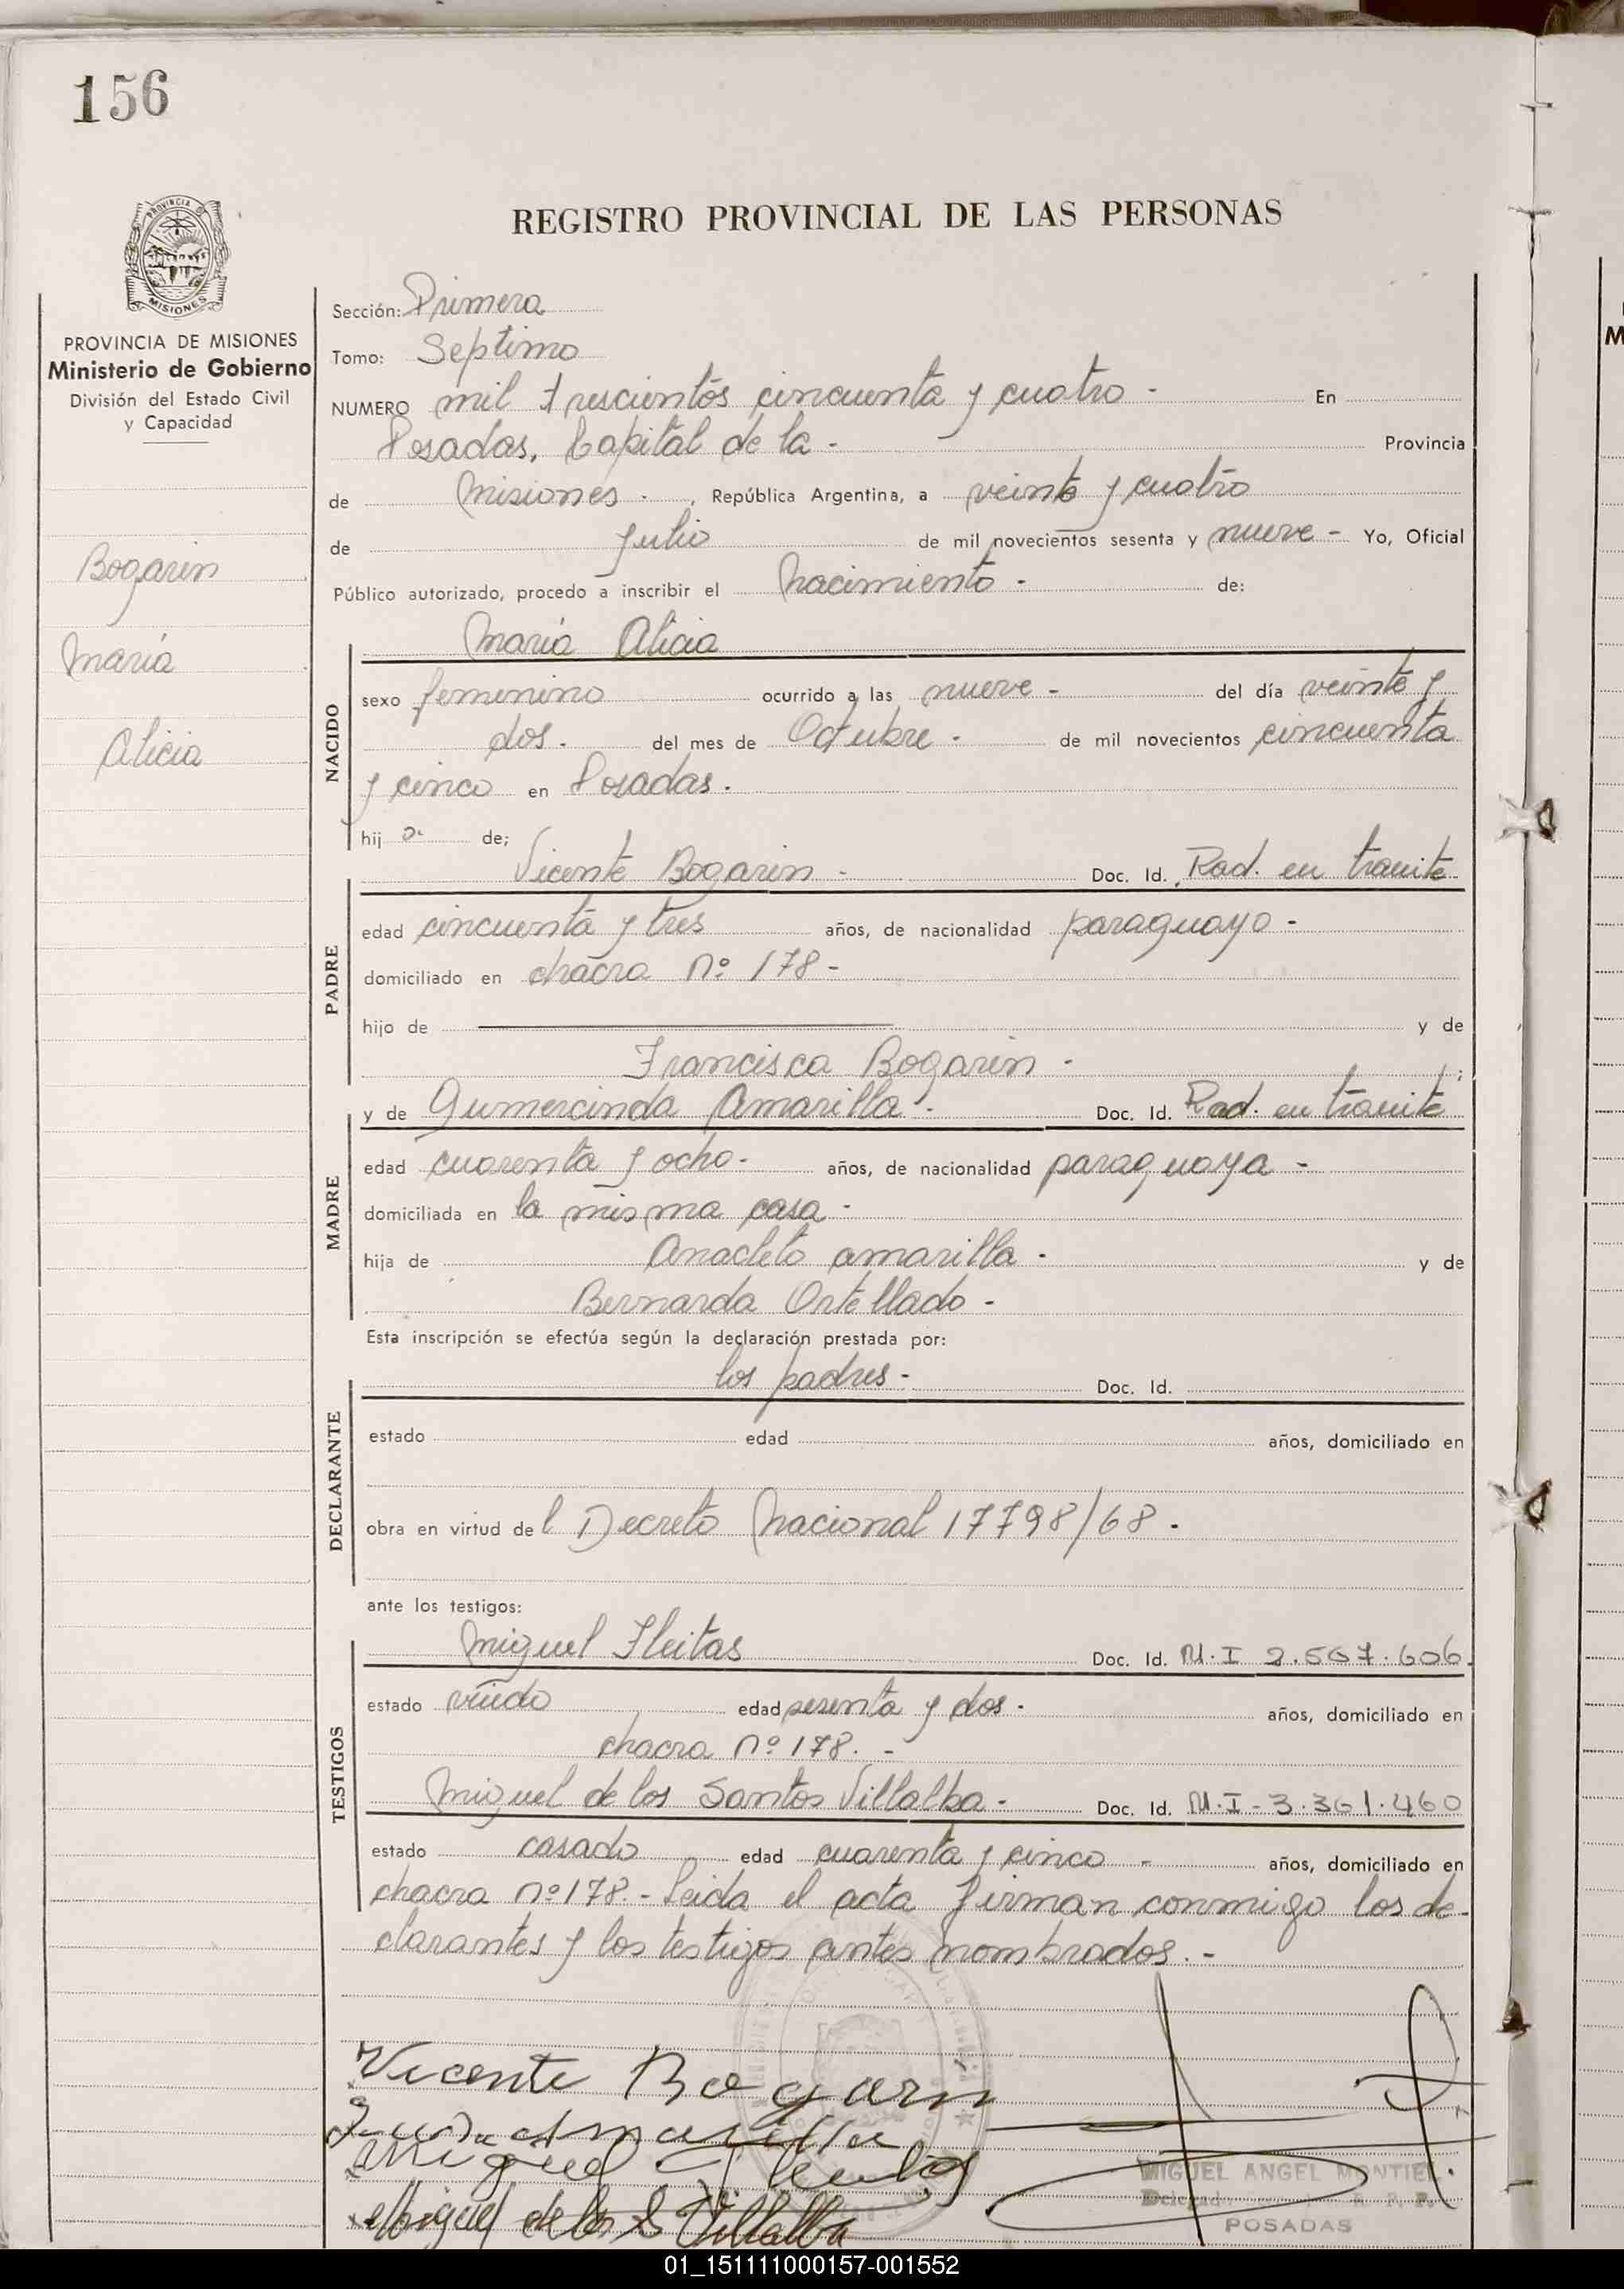 156
REGISTRO PROVINCIAL DE LAS PERSONAS
PROVINCIA
MISIONES
PROVINCIA DE MISIONES
Ministerio de Gobierno
División del Estado Civil
y Capacidad
Bogarin
María
Alicia
Sección: Primera
Tomo: Septimo
NUMERO mil trescientos cincuenta y cuatro - En
Posadas, Capital de la - Provincia
de Misiones - , República Argentina, a veinte y cuatro
de Julio de mil novecientos sesenta y nueve - Yo, Oficial
Público autorizado, procedo a inscribir el Nacimiento - de:
María Alicia
NACIDO
sexo femenino ocurrido a las nueve - del día veinte y
dos - del mes de Octubre - de mil novecientos cincuenta
y cinco en Posadas.
hija de;
Vicente Bogarin - Doc. Id. Rad. en tramite
PADRE
edad cincuenta y tres años, de nacionalidad paraguayo -
domiciliado en chacra nº 178 -
hijo de y de
Francisca Bogarin - ;
y de Gumercinda Amarilla - Doc. Id. Rad. en tramite
MADRE
edad cuarenta y ocho - años, de nacionalidad paraguaya -
domiciliada en la misma casa -
hija de Anacleto amarilla - y de
Bernarda Ortellado -
Esta inscripción se efectúa según la declaración prestada por:
los padres - Doc. Id.
DECLARANTE
estado edad años, domiciliado en
obra en virtud del Decreto Nacional 17798/68 -
ante los testigos:
Miguel Fleitas Doc. Id. M.I 2.567.606.
TESTIGOS
estado viudo edad sesenta y dos - años, domiciliado en
chacra nº 178. -
Miguel de los Santos Villalba - Doc. Id. M.I - 3.361.460
estado casado edad cuarenta y cinco - años, domiciliado en
chacra nº 178. - Leida el acta firman conmigo los de-
clarantes y los testigos antes nombrados. -
Vicente Bogarin
Amarilla
Miguel Fleitas
Miguel de los S Villalba
MIGUEL ANGEL MONTIEL
POSADAS
01_151111000157-001552